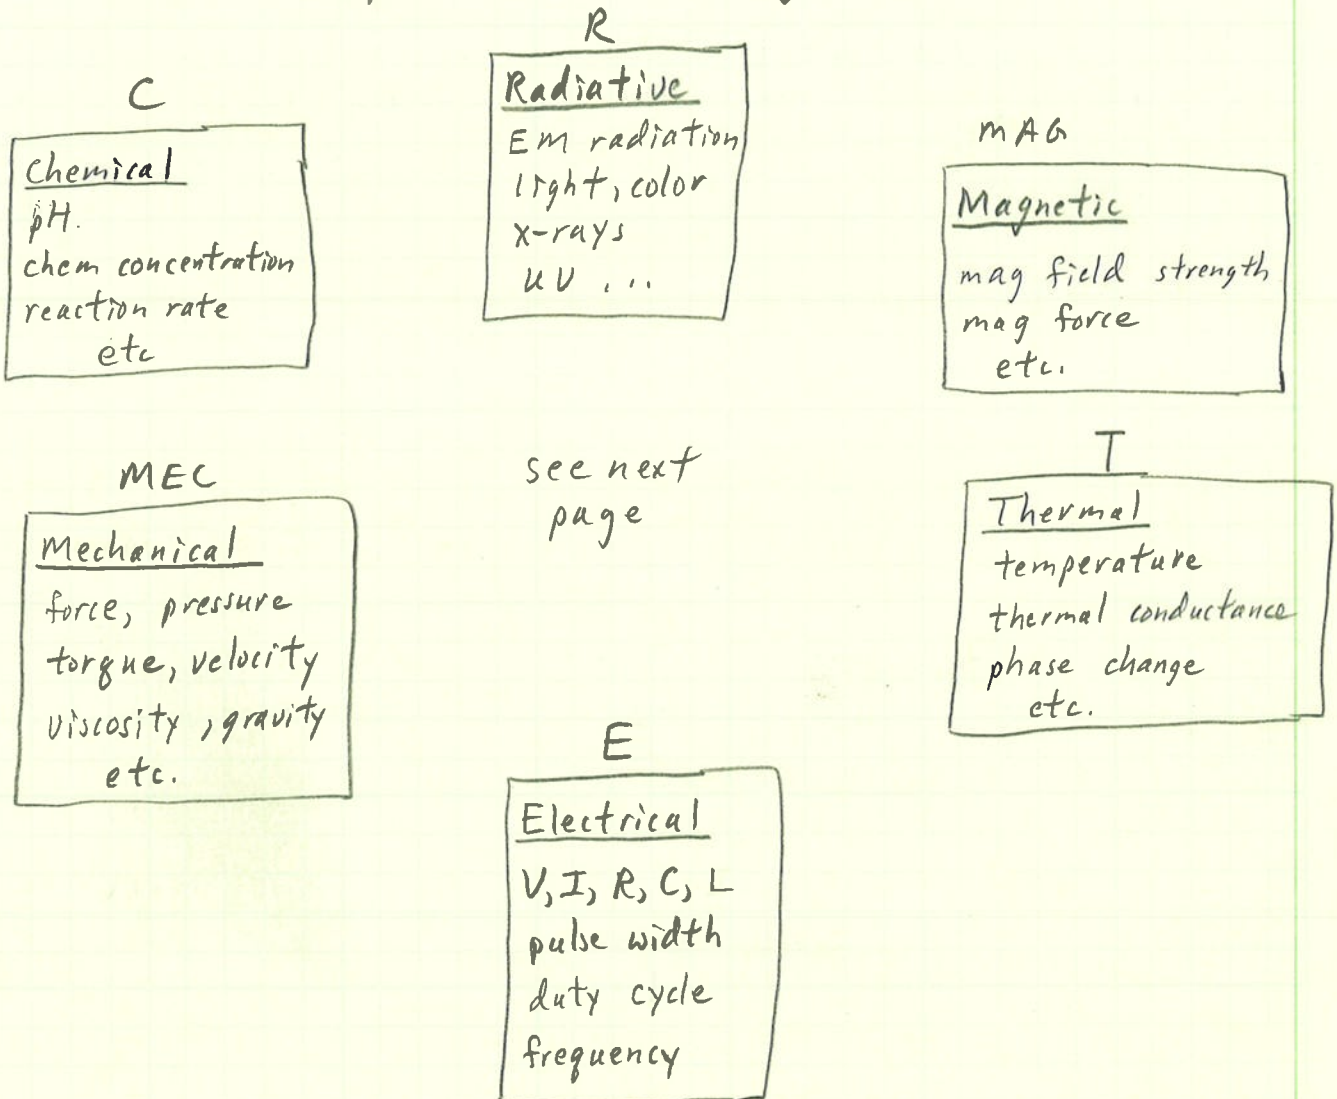 R
Radiative
EM radiation
light, color
x-rays
UV ...
C
Chemical
pH.
chem concentration
reaction rate
etc
mAG
Magnetic
mag field strength
mag force
etc.
MEC
Mechanical
force, pressure
torque, velocity
viscosity, gravity
etc.
see next
page
T
Thermal
temperature
thermal conductance
phase change
etc.
E
Electrical
V, I, R, C, L
pulse width
duty cycle
frequency